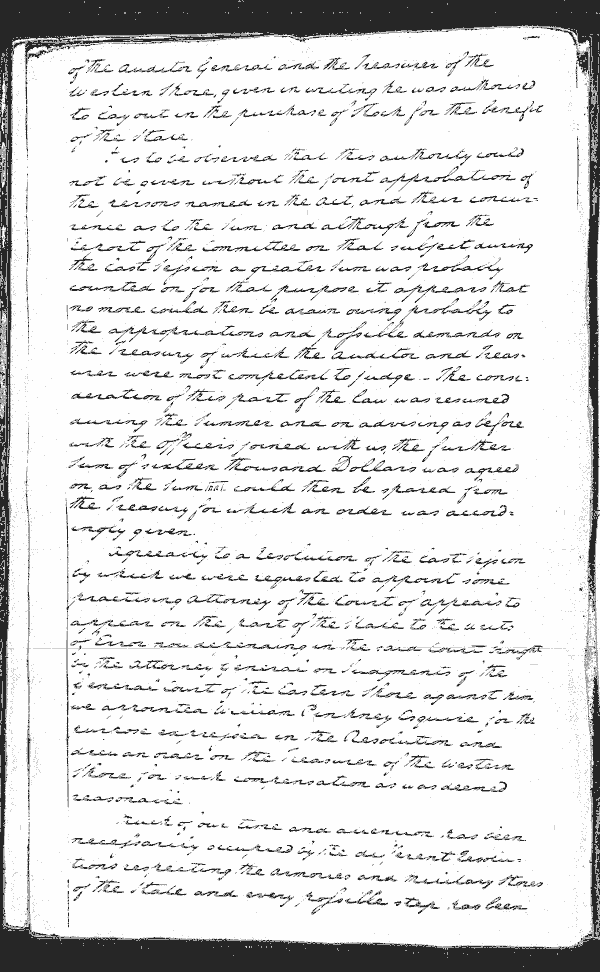 of the Auditor General and the Treasurer of the
Western Shore, given in writing he was authorised
to lay out in the purchase of Stock for the benefit
of the State.
It is to be observed that this authority could
not be given without the joint approbation of
the persons named in the Act, and their concur-
rence as to the Sum; and although from the
report of the Committee on that subject during
the last Session a greater Sum was probably
counted on for that purpose it appears that
no more could then be drawn owing probably to
the appropriations and possible demands on
the Treasury of which the Auditor and Treas-
urer were most competent to judge — The consi-
deration of this part of the law was resumed
during the Summer and on advising as before
with the Officers joined with us, the further
Sum of sixteen thousand Dollars was agreed
on, as the Sum that could then be spared from
the Treasury for which an order was accord-
ingly given.
Agreeably to a Resolution of the last Session
by which we were requested to appoint some
practising Attorney of the Court of Appeals to
appear on the part of the State to the writs
of Error now depending in the said Court brought
by the Attorney General on Judgments of the
General Court of the Eastern Shore against him,
we appointed William Pinkney Esquire for the
purpose expressed in the Resolution and
drew an order on the Treasurer of the Western
Shore for such compensation as was deemed
reasonable.
Much of our time and attention has been
necessarily occupied by the different Resolu-
tions respecting the armories and military Stores
of the State and every possible step has been